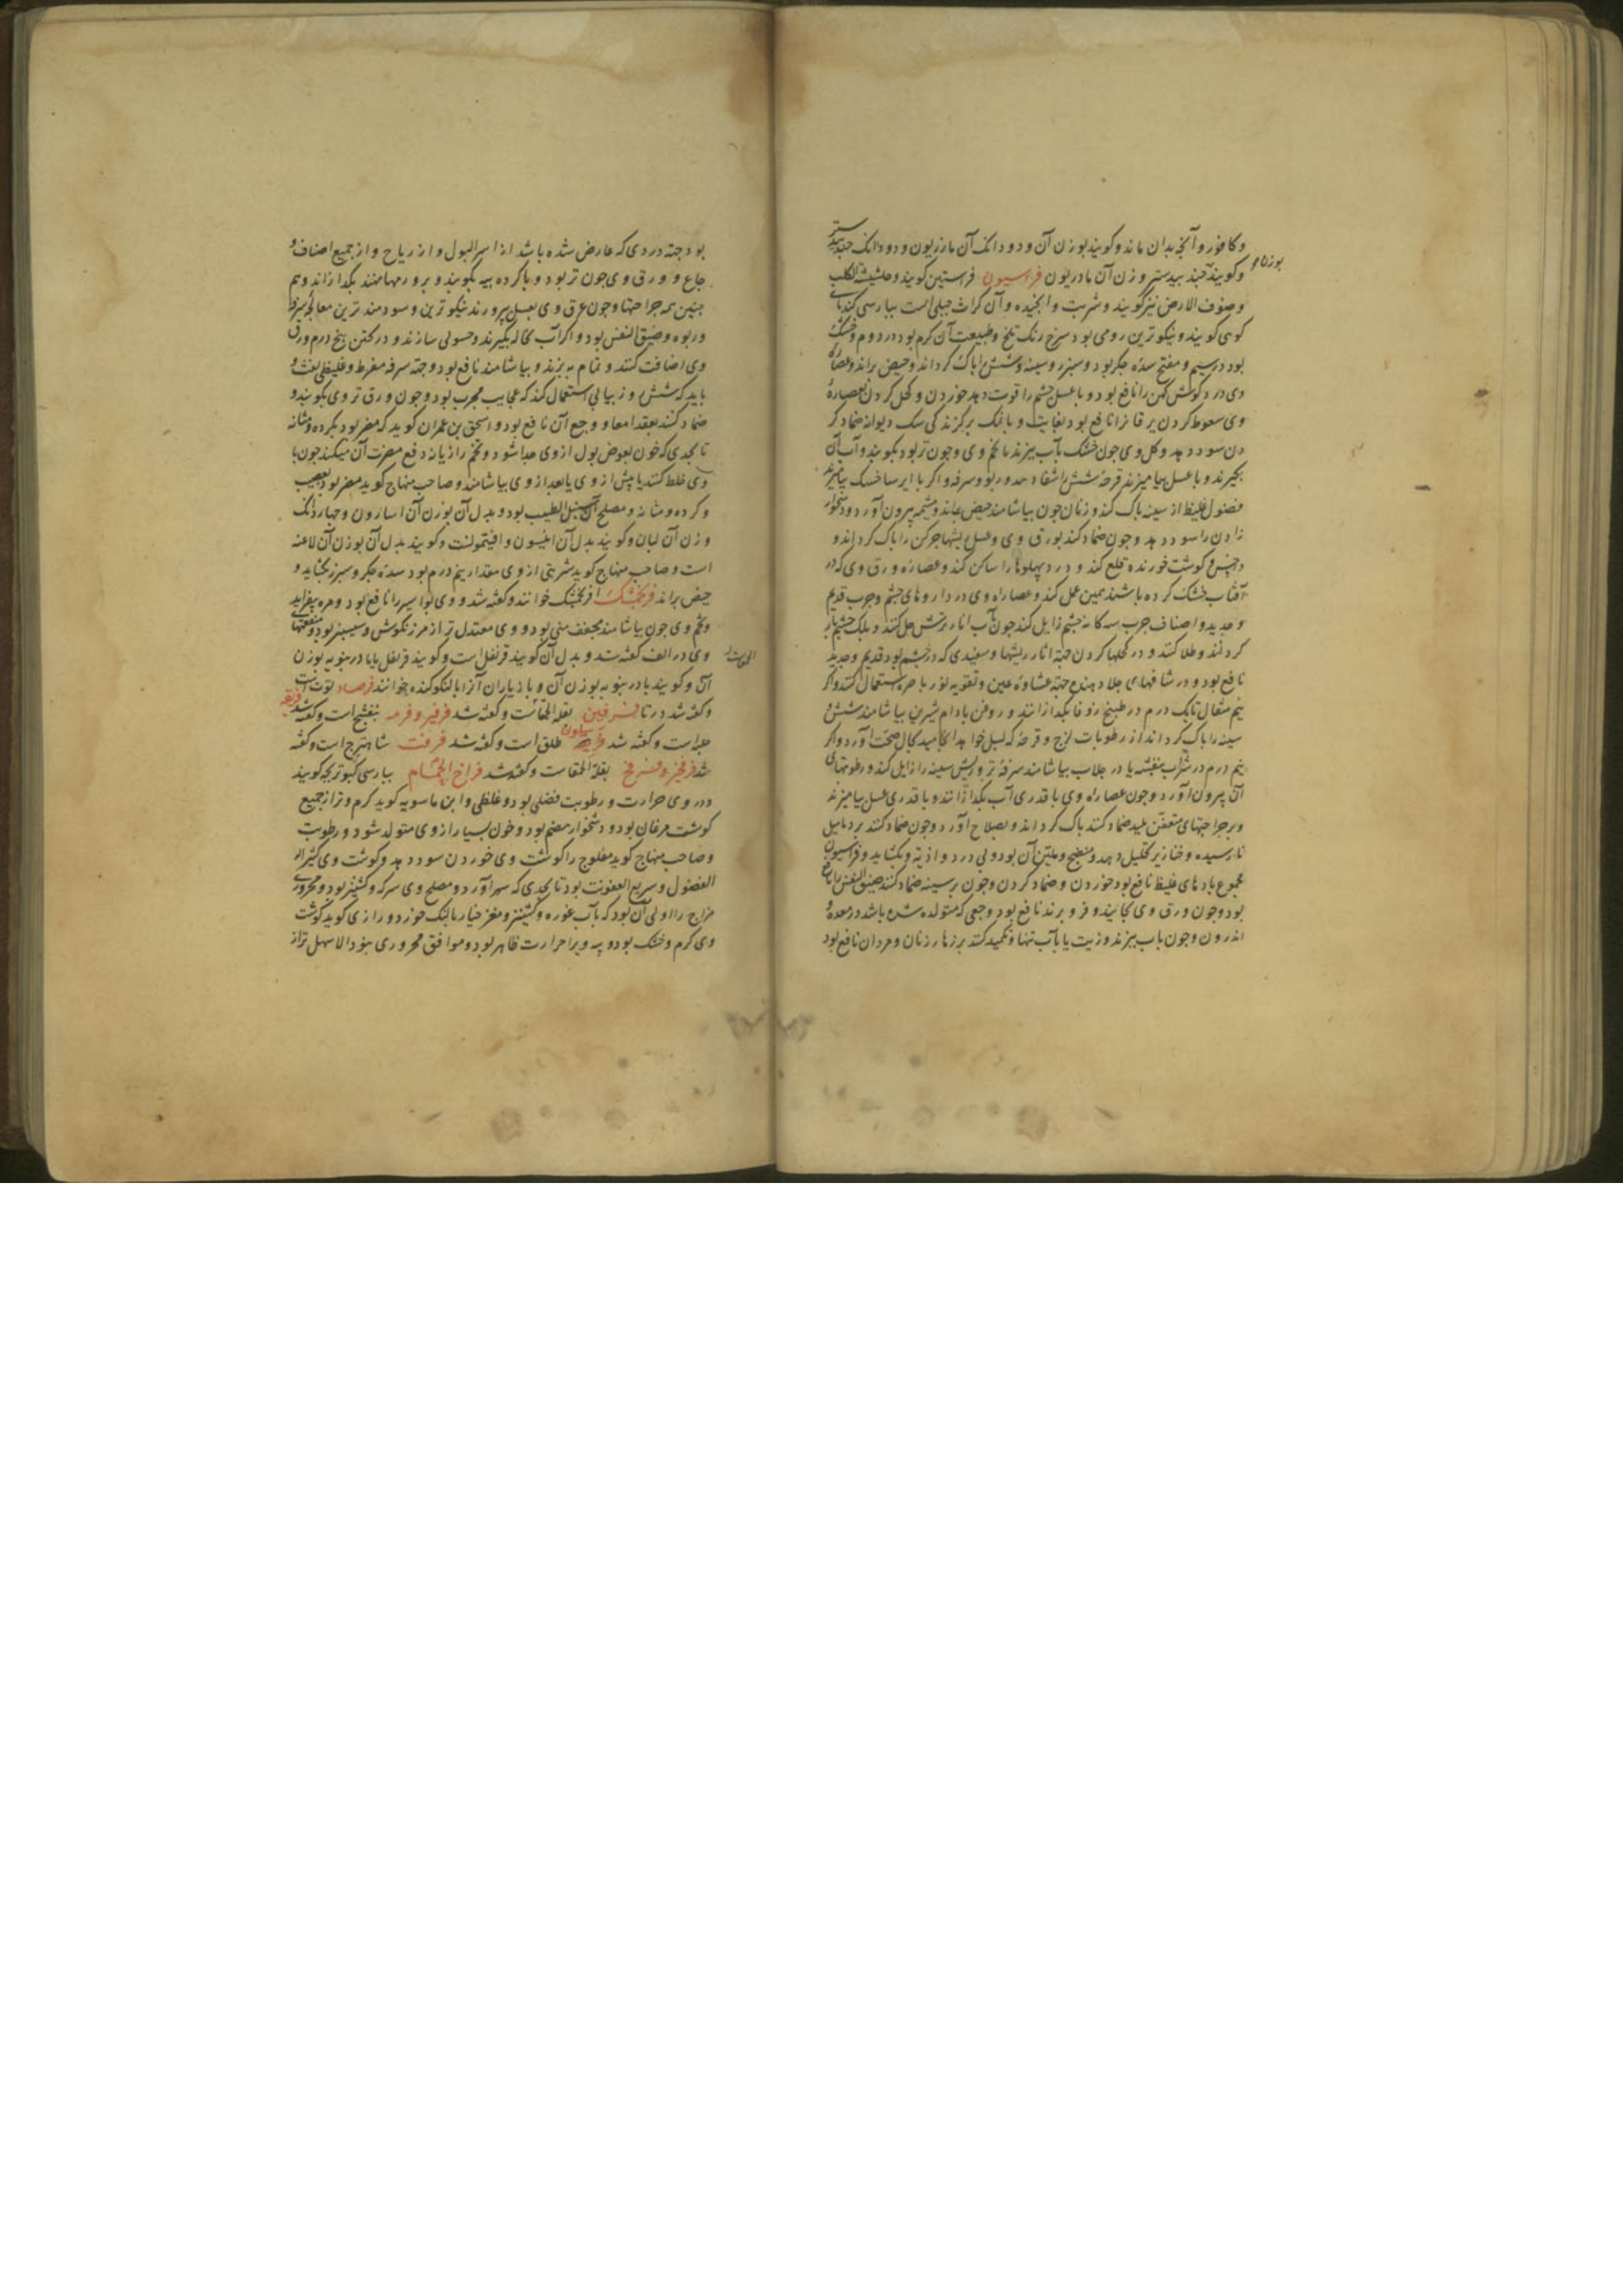 و کافور و آنچه بدان ماند و کویند بوزن آن و دو دانک آن مازریون و دو دانک جندبیدستر
بوزن او
و کویند جندبیدستر وزن آن مادریون فراسیون فراستین کویند و حشیشة الکلب
و صوف الارض نیز کویند و شربت و آن کراث جبلی است بپارسی کندنای
کوهی کویند و نیکوترین رومی بود سرخ رنک تلخ و طبیعت آن کرم بود در دوم و خشک
بود در سیم و مفتح سده جکر بود و سپرز و سینه و شش را پاک کرداند و حیض براند و عصاره
وی درد کوش کهن را نافع بود و با عسل چشم را قوت دهد خوردن و کحل کردن بعصاره
وی سعوط کردن یرقان را نافع بود بغایت و با نمک بر کزندکی سک دیوانه ضماد کر
دن سود دهد و کل وی جون خشک بآب بپزند با تخم وی و جون تر بود بکوبند و آب آن
بکیرند و با عسل بیامیزند قرحه شش را شفا دهد و ربو و سرفه و اکر با ایرسا خشک بیامیزند
فضول غلیظ از سینه پاک کند و زنان جون بیاشامند حیض براند و مشیمه بیرون آورد و دشخوار
زادن را سود دهد و جون ضماد کند بورق وی و عسل ریشها جرکن را پاک کرداند و
داخس و کوشت خورنده قلع کند و درد پهلوها را ساکن کند و عصاره ورق وی که در
آفتاب خشک کرده باشند همین عمل کند و عصاره وی در داروهای جشم و جرب قدیم
و جدید و اصناف جرب سه کانه جشم زایل کند جون بآب انار ترش حل کنند و پلک جشم باز
کردانند و طلا کنند و در کحلها کردن جهة آثار ریشها و سفیدی که در جشم بود قدیم و جدید
نافع بود و در شافهای جلا دهنده جهة غشاوه عین و تقویه نور باصره استعمال کنند و اکر
نیم مثقال تا یک درم در طبیخ زوفا بکدازانند و روغن بادام شیرین بیاشامند شش و
سینه را پاک کرداند از رطوبات لزج و قرحه که بسل خواهد انجامید بحال صحت آورد و اکر
نیم درم در شراب بنفشه یا در جلاب بیاشامند سرفه تر و ریش سینه را زایل کند و رطوبتهای
آن بیرون آورد و جون عصاره وی با قدری آب بکدازانند و با قدری عسل بیامیزند
و بر جراحتهای متعفن پلید ضماد کنند پاک کرداند و بصلاح آورد و جون ضماد کنند بر دمامیل
نارسیده و خنازیر تحلیل دهد و منضج و ملین آن بود و بی درد و اذیه و بکشاید و فراسیون
مجموع بادهای غلیظ نافع بود خوردن و ضماد کردن و جون بر سینه ضماد کنند ضیق النفس را نافع
بود و جون ورق وی بخایند و فرو برند نافع بود وجعی که متولد شده باشد در معده و
اندرون و جون بآب بپزند و زیت یا بآب تنها و تکمید کنند بر زهار زنان و مردان نافع بود
بود جهة دردی که عارض شده باشد از اسر البول و از ریاح و از جمیع اصناف و
جاع و ورق وی جون تر بود و با کرده پیه بکوبند و بر ورمها نهند بکدازاند و هم
جنین همه جراحتها و جون عرق وی بعسل بپرورند نیکوترین و سودمندترین معالجه سرفه
و ربو و ضیق النفس بود و اکر آب نخاله بکیرند و حسوئی سازند و در پختن پنج درم ورق
وی اضافت کنند و تمام بپزند و بیاشامند نافع بود و جهة سرفه مفرط و غلیظی نفث و
باید که شش روز پیاپی استعمال کند که عجایب مجرب بود و جون ورق تر وی بکوبند و
ضماد کنند بعقد امعا و وجع آن نافع بود و اسحق بن عمران کوید که مضر بود بکرده و مثانه
تا بحدی که خون بعوض بول از وی جدا شود و تخم رازیانه دفع مضرت آن میکند جون با
وی خلط کنند یا پیش از وی یا بعد از وی بیاشامند و صاحب منهاج کوید مضر بود بعصب
و کرده و مثانه و مصلح آن سنبل الطیب بود و بدل آن بوزن آن اسارون و جهار دانک
وزن آن لبان و کویند بدل آن انیسون و افیتمونست و کویند بدل آن بوزن آن لاعنه
است و صاحب منهاج کوید شربتی از وی مقدار نیم درم بود سده جکر و سپرز بکشاید و
حیض براند فرنجمشک افرنجمشک خوانند و کفته شد و وی بواسیر را نافع بود و مره بیفزاید
و تخم وی جون بیاشامند مجفف منی بود و وی معتدل تر از مرزنکوش و سیسنبر بود و منفعتهای
وی در الف کفته شد و بدل آن کویند قرنفل است و کویند قرنفل یا بادرنبویه بوزن
آن و کویند بادرنبویه بوزن آن و بازیاران آنرا بالنکو کنده خوانند فرصاد توت است
و کفته شد در تا فرفین بقلة الحمقاست و کفته شد فرفیر و فرمه بنفشج است و کفته شد فرنقه
حبه است و کفته شد طلق است و کفته شد فرفنت شاهترج است و کفته
شد فرفخ و فرفخ بقلة الحمقاست و کفته شد فراخ الحمام بپارسی کبوتر بجه کویند
در وی حرارت و رطوبت فضلی بود و غلظی و ابن ماسویه کوید کرم و تر از جمیع
کوشت مرغان بود و دشخوار هضم بود و خون بسیار از وی متولد شود و رطوبت
و صاحب منهاج کوید مفلوج را کوشت وی خوردن سود دهد و کوشت وی کثیر
الفضول و سریع العفونت بود تا بحدی که سهر آورد و مصلح وی سرکه و کشنیز بود و محروری
مزاج را اولی آن بود که بآب غوره و کشنیز و مغز خیار بالنک خورد و رازی کوید کوشت
وی کرم و خشک بود و پیه ویرا حرارت ظاهر بود و موافق محروری نبود الا سهل تر از